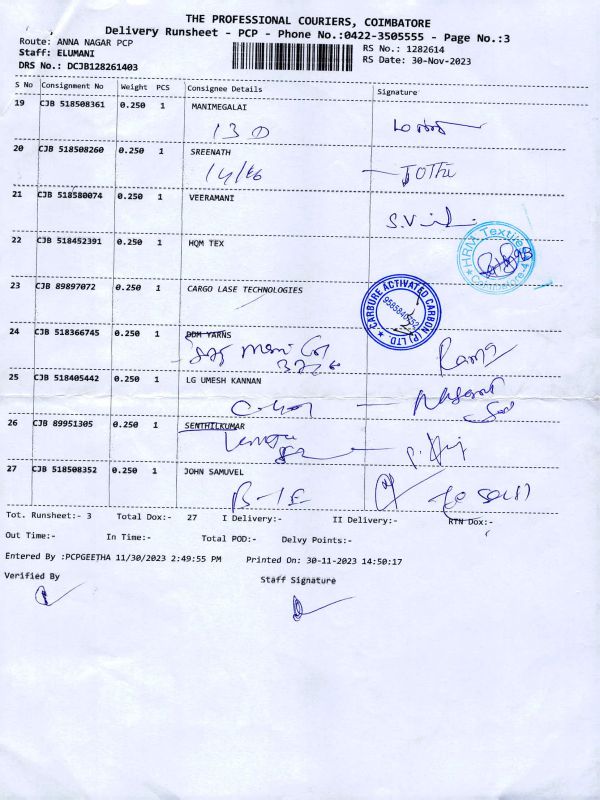 THE PROFESSIONAL COURIERS, COIMBATORE
Delivery Runsheet - PCP - Phone No.:0422-3505555 - Page No.:3
Route: ANNA NAGAR PCP
RS No.: 1282614
Staff: ELUMANI
RS Date: 30-Nov-2023
DRS No.: DCJB128261403
S No Consignment No Weight PCS Consignee Details Signature
19 CJB 518508361 0.250 1 MANIMEGALAI
130
20 CJB 518508260 0.250 1 SREENATH
21 CJB 518580074 0.250 1 VEERAMANI
22 CJB 518452391 0.250 1 HQM TEX
HRM Textile
23 CJB 89897072 0.250 1 CARGO LASE TECHNOLOGIES
CARBURE ACTIVATED CARBON (P) LTD.
24 CJB 518366745 0.250 1 DDM YARNS
25 CJB 518405442 0.250 1 LG UMESH KANNAN
26 CJB 89951305 0.250 1 SENTHILKUMAR
27 CJB 518508352 0.250 1 JOHN SAMUVEL
Tot. Runsheet:- 3 Total Dox:- 27 I Delivery:- II Delivery:- RTN Dox:-
Out Time:- In Time:- Total POD:- Delvy Points:-
Entered By :PCPGEETHA 11/30/2023 2:49:55 PM Printed On: 30-11-2023 14:50:17
Verified By Staff Signature